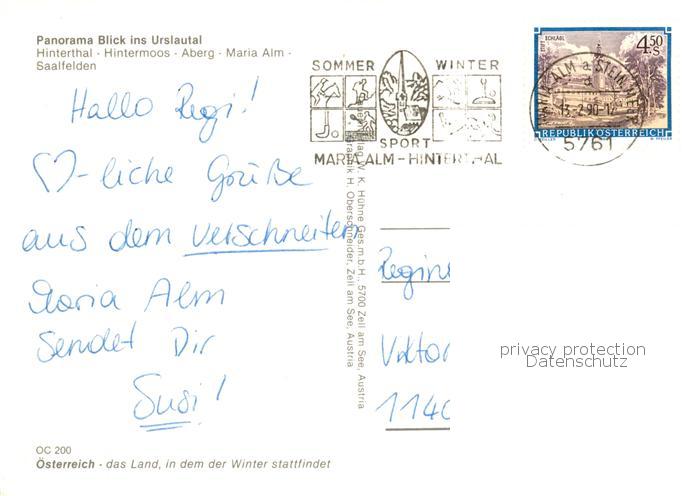 Panorama Blick ins Urslautal
Hinterthal · Hintermoos · Aberg · Maria Alm ·
Saalfelden
Hallo Regi!
♡-liche Grüße
aus dem verschneiten
Maria Alm
sendet Dir
Susi!
OC 200
Österreich - das Land, in dem der Winter stattfindet
SOMMER WINTER
SPORT
MARIA ALM - HINTERTHAL
STIFT SCHLÄGL
4.50 S
REPUBLIK ÖSTERREICH
MARIA ALM a STEIN MEER
13.-2.90-12
5761
V. K. Hühne Ges.m.b.H., 5700 Zell am See, Austria
H. Oberschneider, Zell am See, Austria
Regin
Viktor
1140
privacy protection
Datenschutz